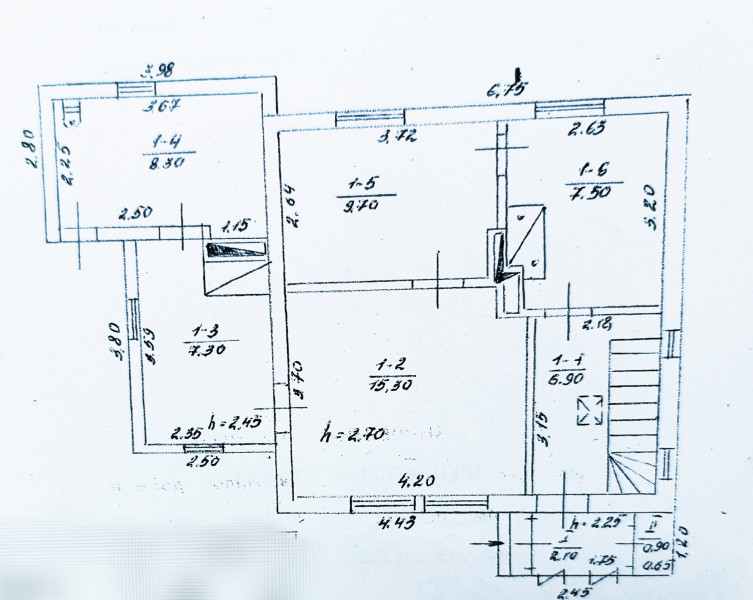 3,98
3,67
2.80
2.25
1-4
8.30
2.50
1.15
6,75
3,72
2.63
1-5
9.70
2.64
1-6
7.50
3.20
3.80
3.59
1-3
7.30
2.35
h=2.45
2.50
3.70
1-2
15,30
h=2.70
4.20
4.43
2.18
1-1
6.90
3,15
h=2.25
I
2.10
1.75
II
0.90
0.65
1,20
2.45